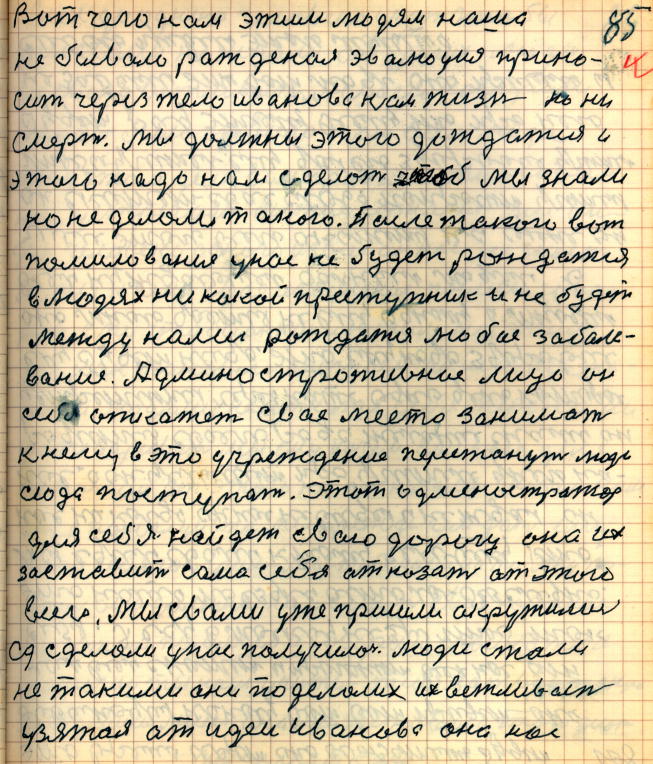 85
4
Вот чего нам этим людям наша
не бывало рожденая эволюция прино-
сит через тело иванова нам жизн но ни
смерт. Мы должны этого дождатся и
этого надо нам сделот чтоб мы знали
но не делоли такого. После такого вот
помилования унас не будет рождатся
влюдях никокой преступник и не будет
между нами рождатся любое заболе-
вание. Админостротивное лицо он
себя откажет свое место занимат
кнему в это учреждение перестанут люди
сюда поступат. Этот администратор
для себя найдет свою дорогу она их
заставит сама себя отказат от этого
всего. Мы свами уже пришли окружили
сделоли унас получилос. Люди стали
не такими они поделоли их вежливост
узятая от идеи иванова она нас